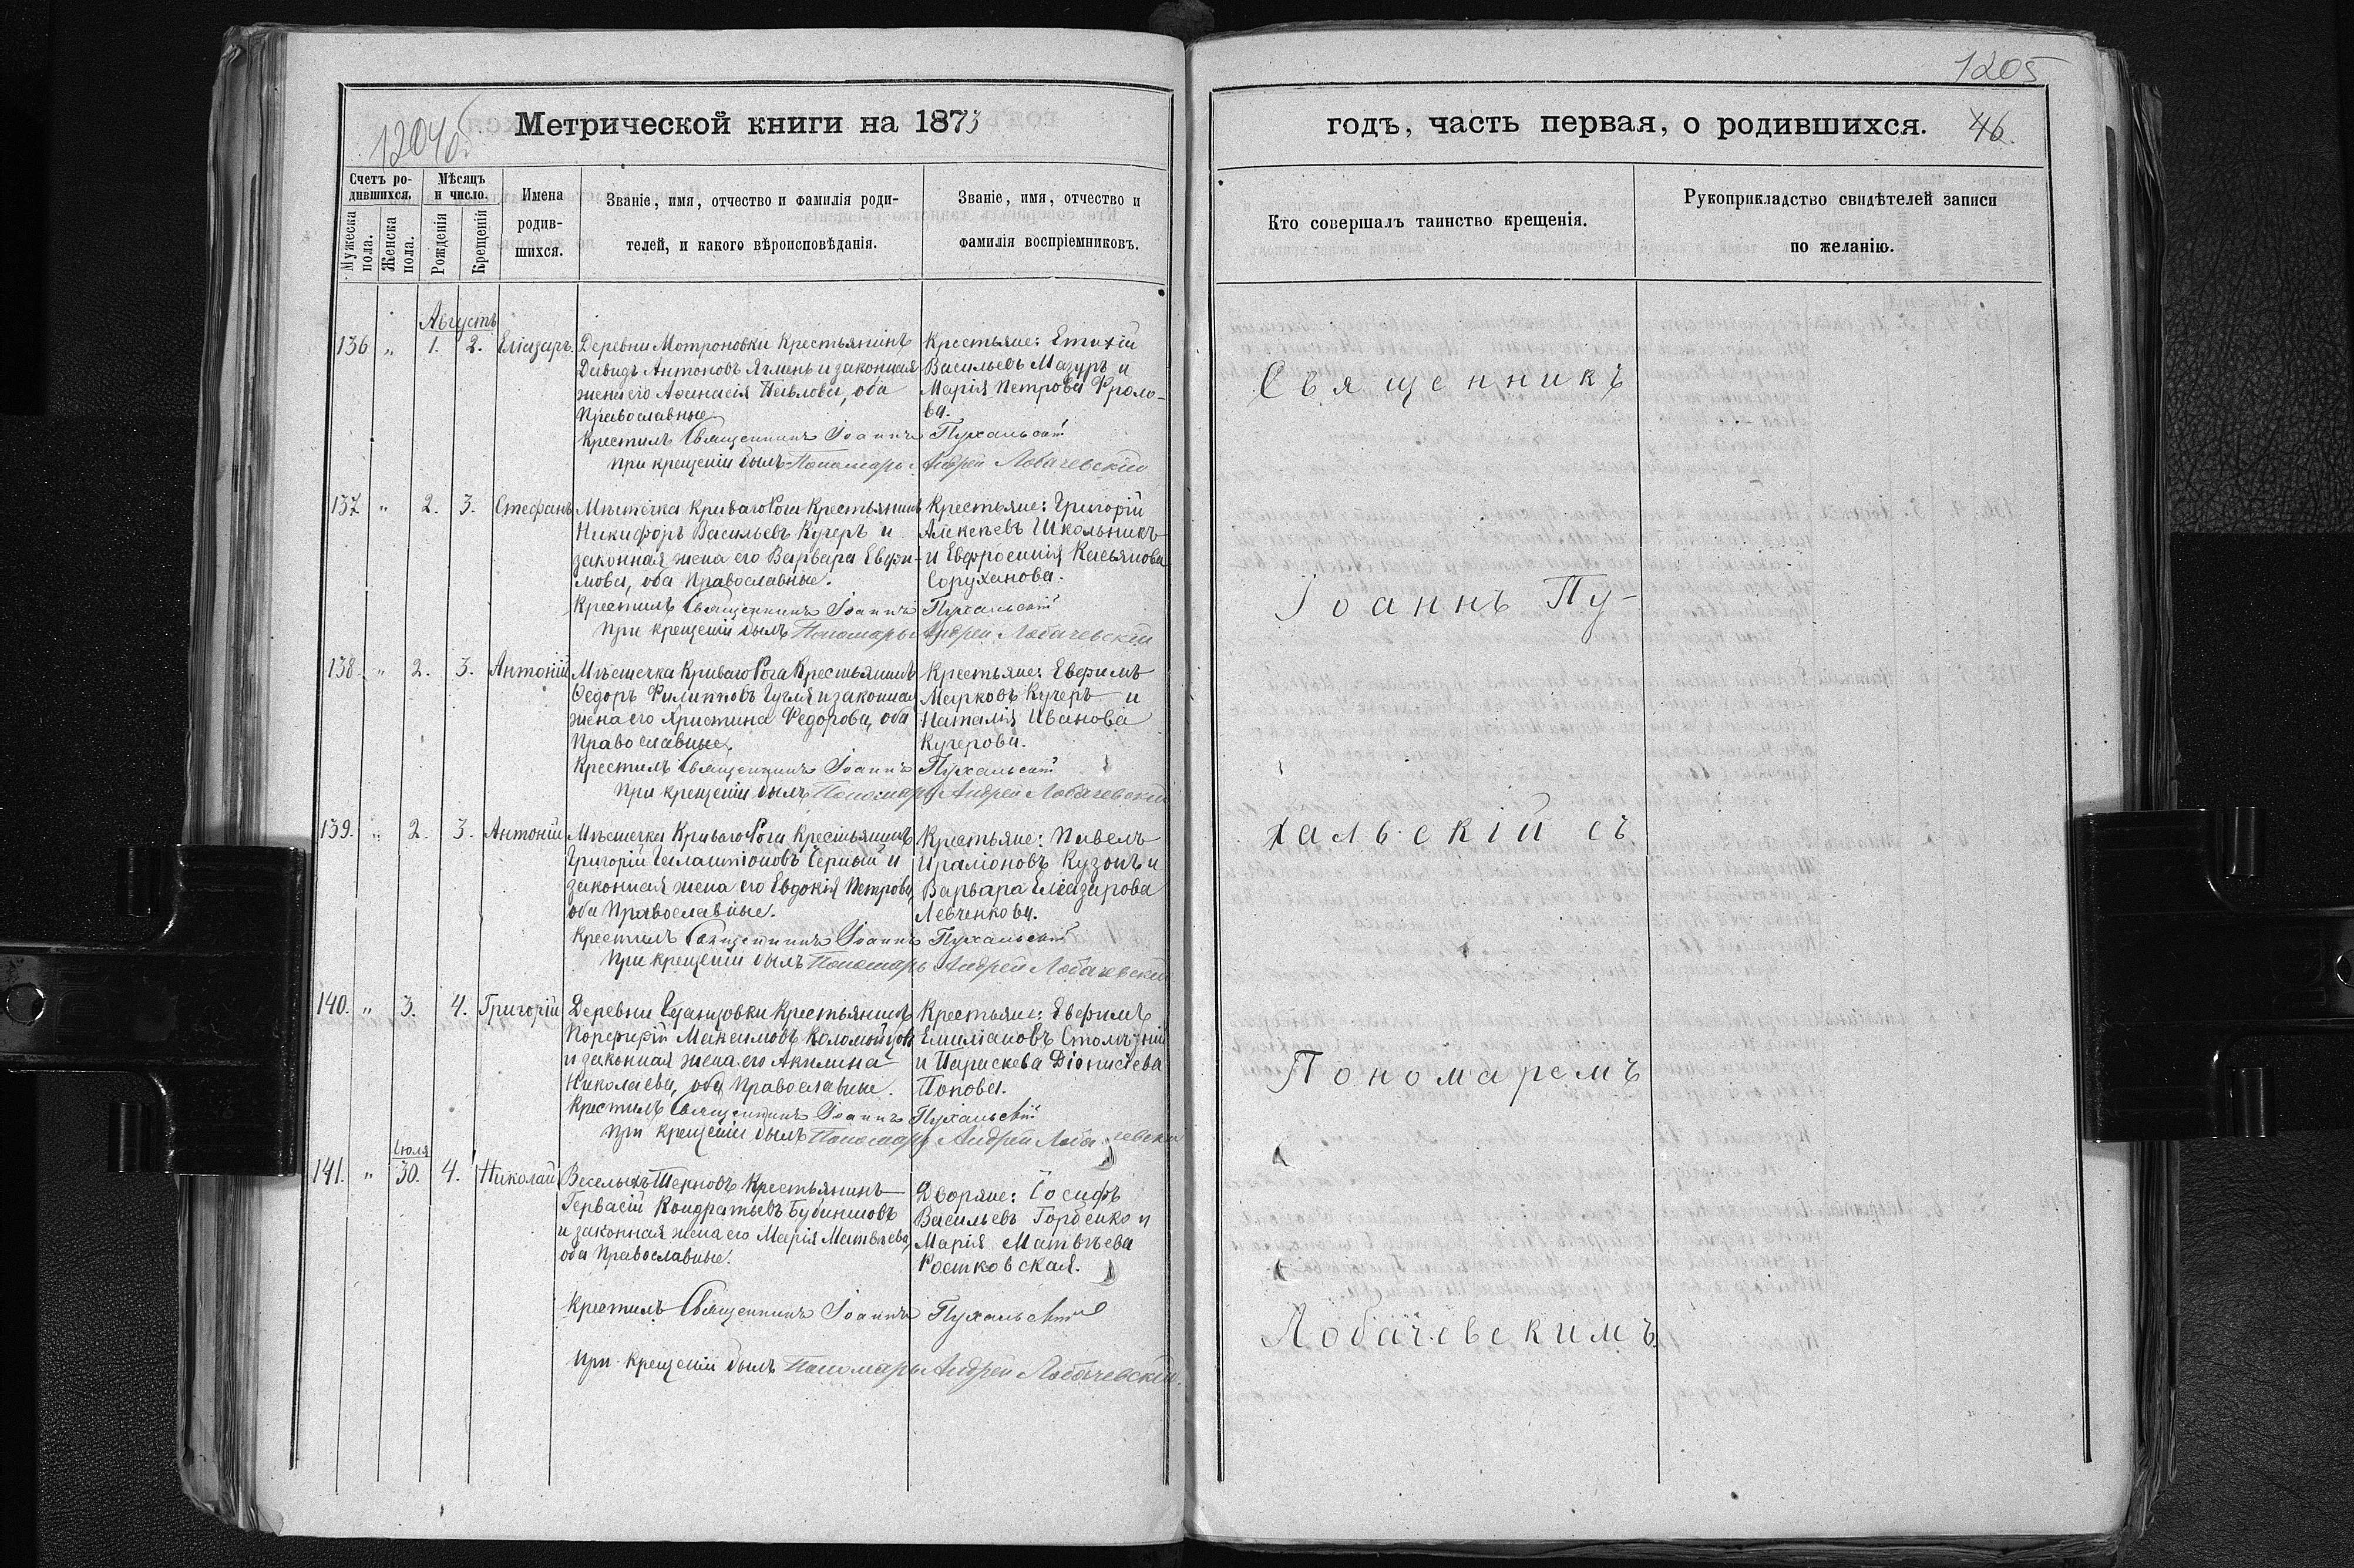 1205
Метрической книги на 1873
годъ, часть первая, о родившихся. 46.
1204об
Счетъ родившихся.
Мужеска пола.
Женска пола.
Мѣсяцъ и число.
Рожденія
Крещенія
Имена родившихся.
Званіе, имя, отчество и фамилія родителей, и какого вѣроисповѣданія.
Званіе, имя, отчество и фамилія воспріемниковъ.
Кто совершалъ таинство крещенія.
Рукоприкладство свидѣтелей записи по желанію.
Августъ
136 „ 1. 2. Еліазаръ. Деревни Мотроновки Крестьянинъ
Давидъ Антоновъ Ягмень и законная
жена его Аѳанасія Павлова, оба
Православные.
Крестьяне: Евтихій
Васильевъ Мазуръ и
Марія Петрова Фроло-
ва.
Крестилъ Священникъ Іоаннъ Пухальскій
При крещеніи былъ Пономарь Андрей Лобачевскій
137 „ 2. 3. Стефанъ Мѣстечка Криваго Рога Крестьянинъ
Никифоръ Васильевъ Кучеръ и
законная жена его Варвара Евфи-
мова, оба Православные.
Крестьяне: Григорій
Алексѣевъ Школьникъ
и Евфросинія Касьянова
Соруханова.
Крестилъ Священникъ Іоаннъ Пухальскій
При крещеніи былъ Пономарь Андрей Лобачевскій
138 „ 2. 3. Антоній Мѣстечка Криваго Рога Крестьянинъ
Ѳедоръ Филипповъ и законная
жена его Христина Федорова, оба
Православные.
Крестьяне: Евфимъ
Марковъ Кучеръ и
Наталія Иванова
Кучерова.
Крестилъ Священникъ Іоаннъ Пухальскій
При крещеніи былъ Пономарь Андрей Лобачевскій
139. „ 2. 3. Антоній Мѣстечка Криваго Рога Крестьянинъ
Григорій Галактіоновъ Черный и
законная жена его Евдокія Петрова,
оба Православные.
Крестьяне: Павелъ
Ираліоновъ Кузонъ и
Варвара Еліазарова
Левченкова.
Крестилъ Священникъ Іоаннъ Пухальскій
При крещеніи былъ Пономарь Андрей Лобачевскій
140. „ 3. 4. Григорій Деревни Крестьянинъ
Порфирій Максимовъ Коломыйцовъ
и законная жена его Акилина
Николаева, оба Православные.
Крестьяне: Евфимъ
Емиліановъ
и Параскева Діонисіева
Попова.
Крестилъ Священникъ Іоаннъ Пухальскій
При крещеніи былъ Пономарь Андрей Лобачевскій
Іюля
141. „ 30. 4. Николай Веселыхъ Терновъ Крестьянинъ
Гервасій Кондратьевъ Бубинцовъ
и законная жена его Марія Матвѣева,
оба Православные.
Дворяне: Іосифъ
Васильевъ Горбенко и
Марія Матвѣева
Ростковская.
Крестилъ Священникъ Іоаннъ Пухальскій
При крещеніи былъ Пономарь Андрей Лобачевскій.
Священникъ
Іоаннъ Пу-
хальскій съ
Пономаремъ
Лобачевскимъ